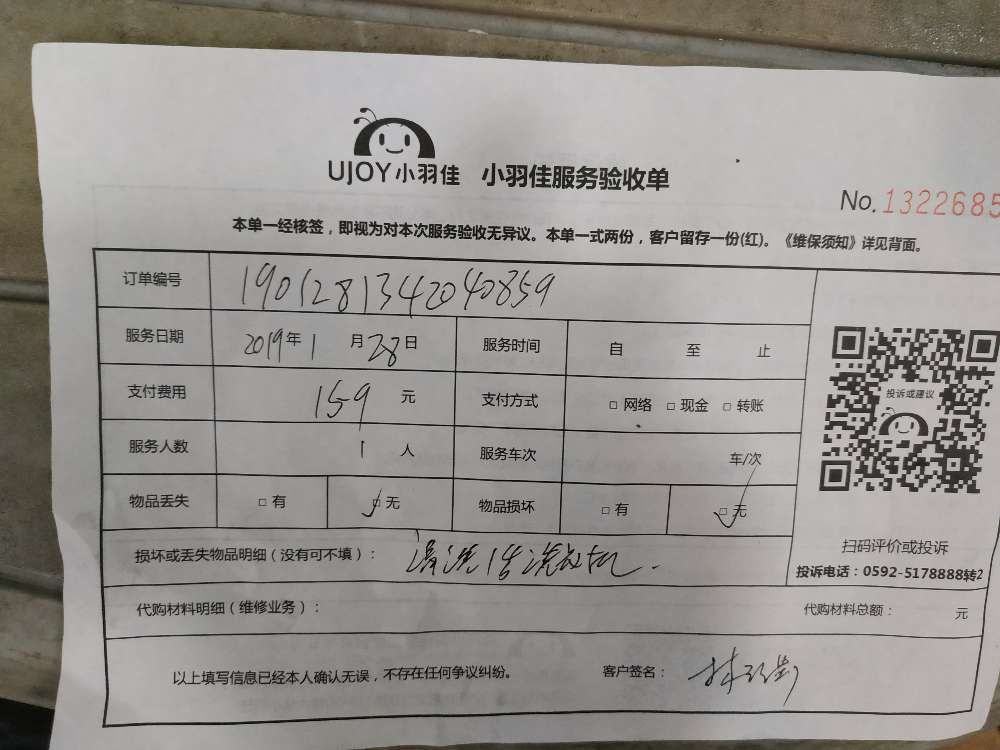 UJOY小羽佳 小羽佳服务验收单
No.1322685
本单一经核签，即视为对本次服务验收无异议。本单一式两份，客户留存一份(红)。《维保须知》详见背面。
订单编号 190128134204​0859
服务日期 2019年1月28日 服务时间 自 至 止
支付费用 159元 支付方式 □ 网络 □ 现金 □ 转账
服务人数 1人 服务车次 车/次
物品丢失 □ 有 ☑ 无 物品损坏 □ 有 ☑ 无
投诉或建议
扫码评价或投诉
投诉电话：0592-5178888转2
损坏或丢失物品明细（没有可不填）： 清洗1台洗衣机.
代购材料明细（维修业务）： 代购材料总额： 元
以上填写信息已经本人确认无误，不存在任何争议纠纷。 客户签名：